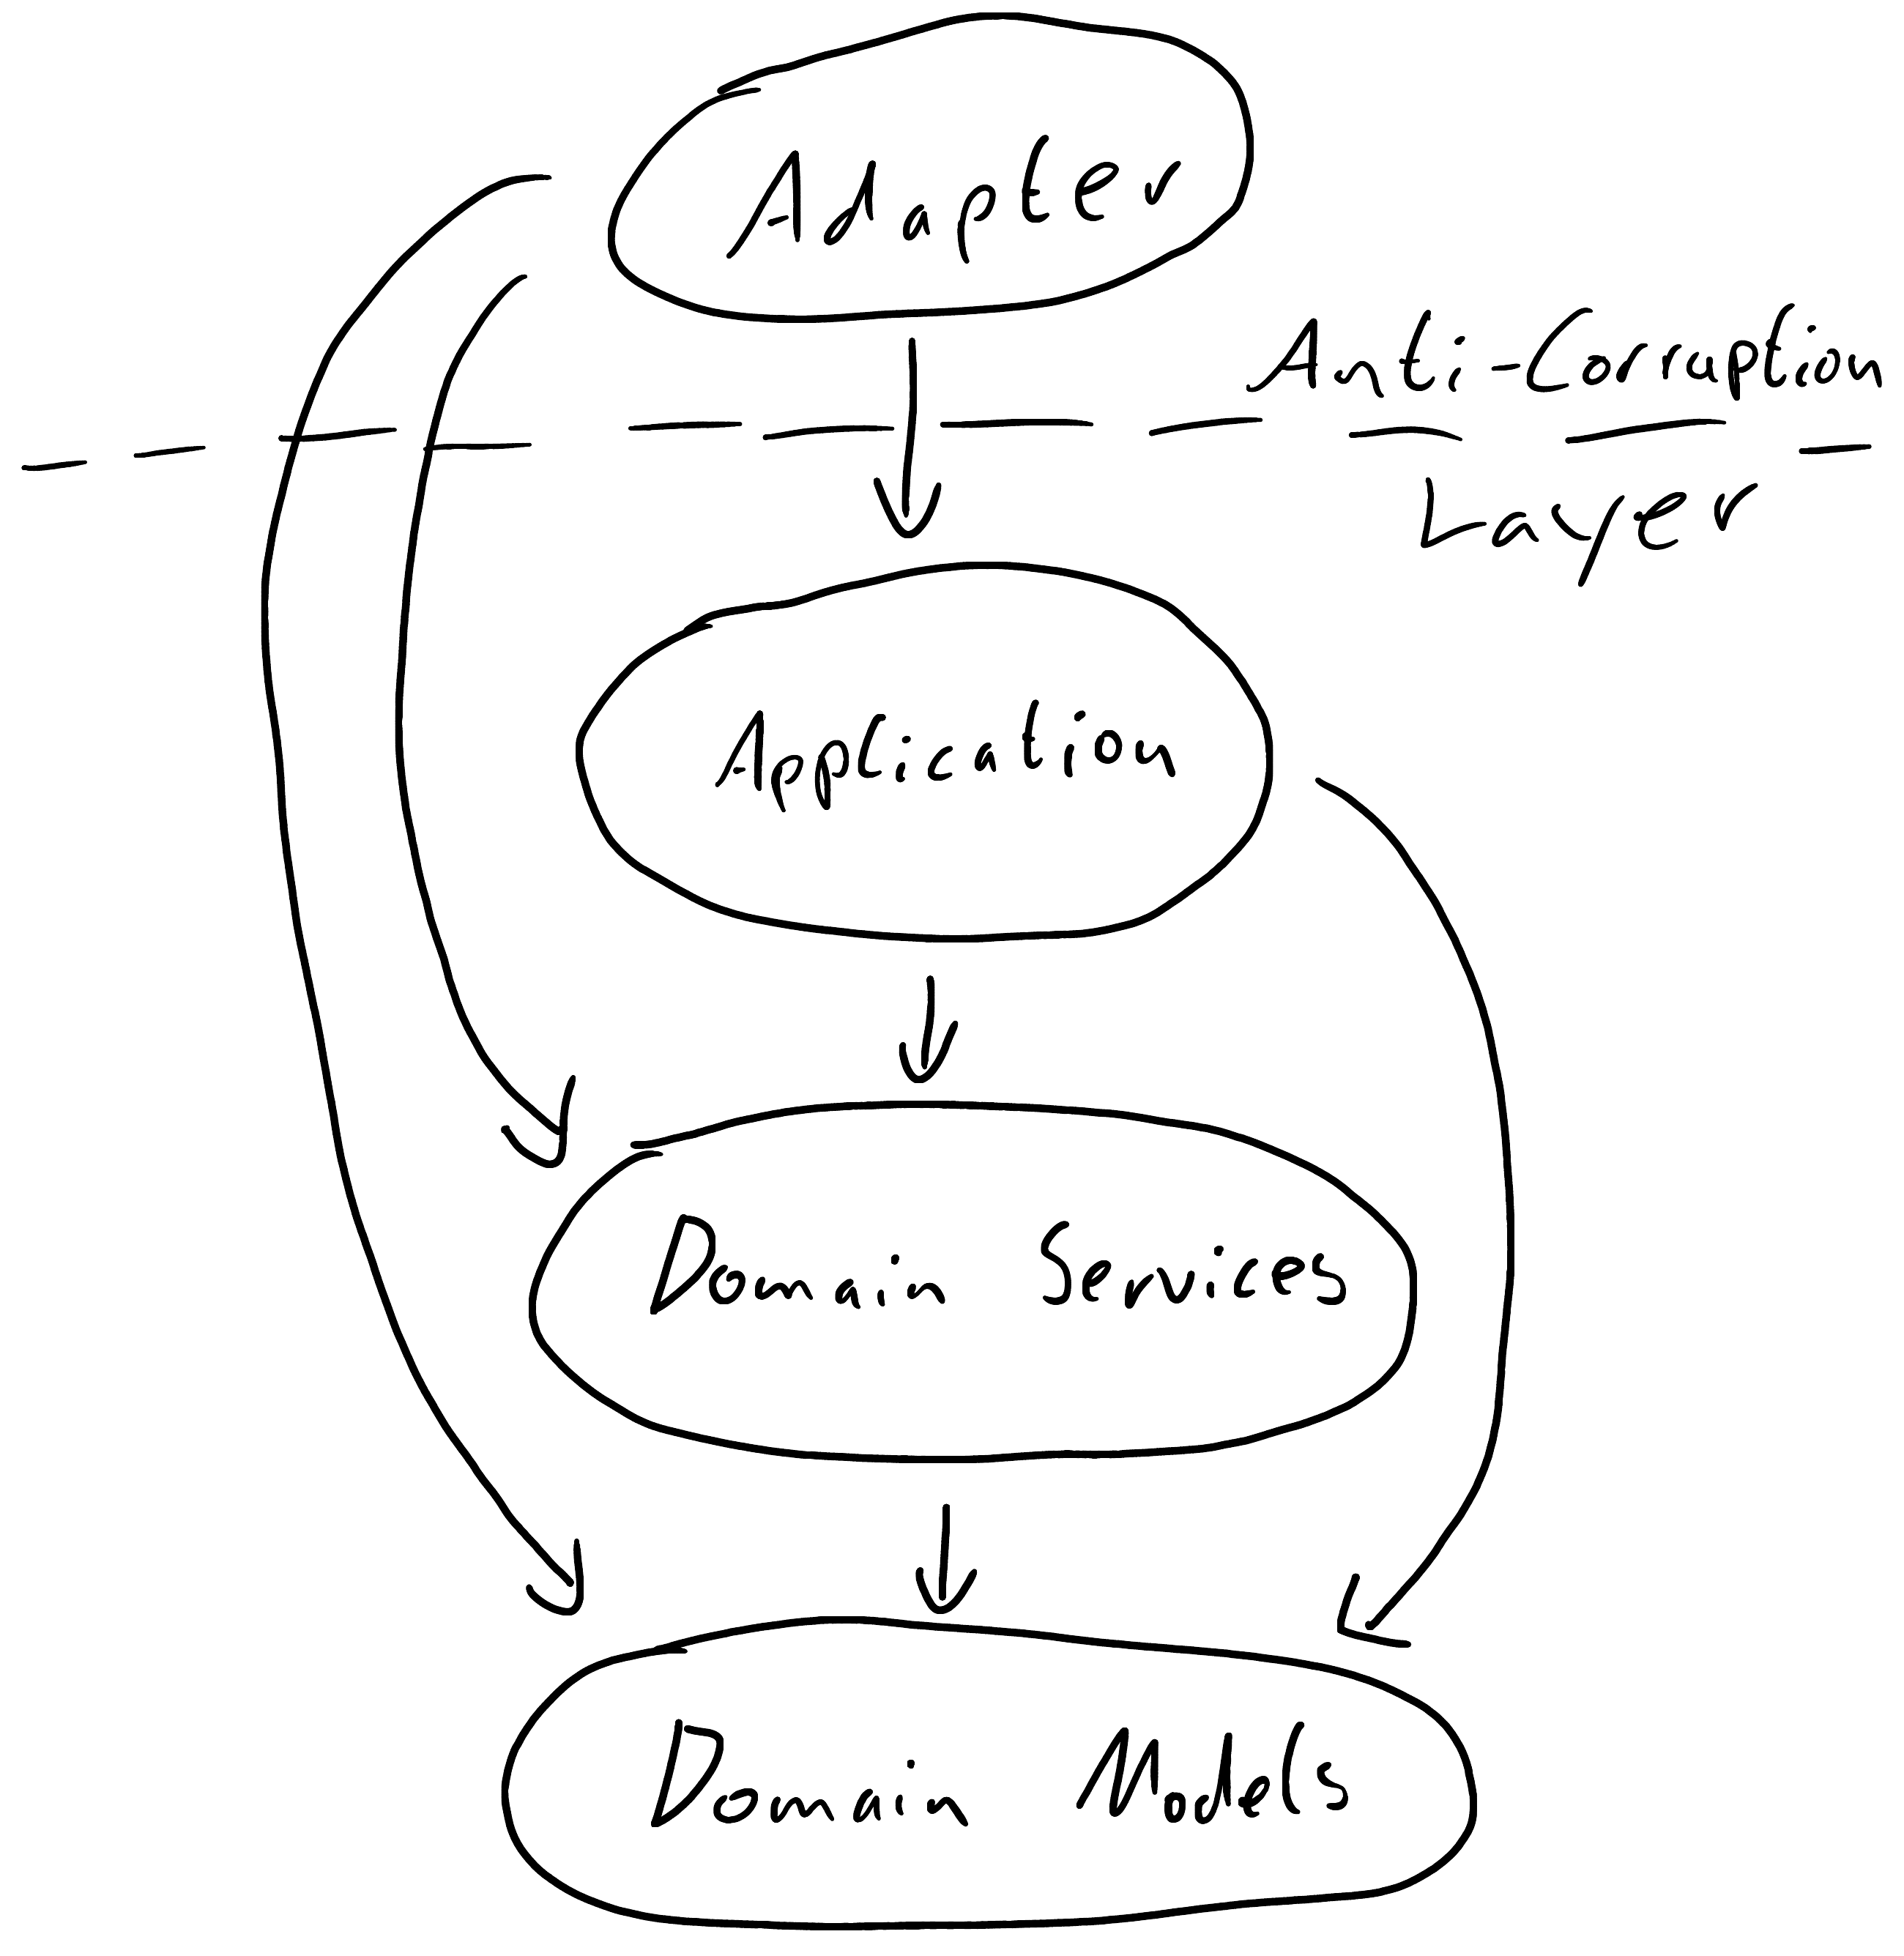 Adapter
Anti-Corruption
Layer
Application
Domain Services
Domain Models